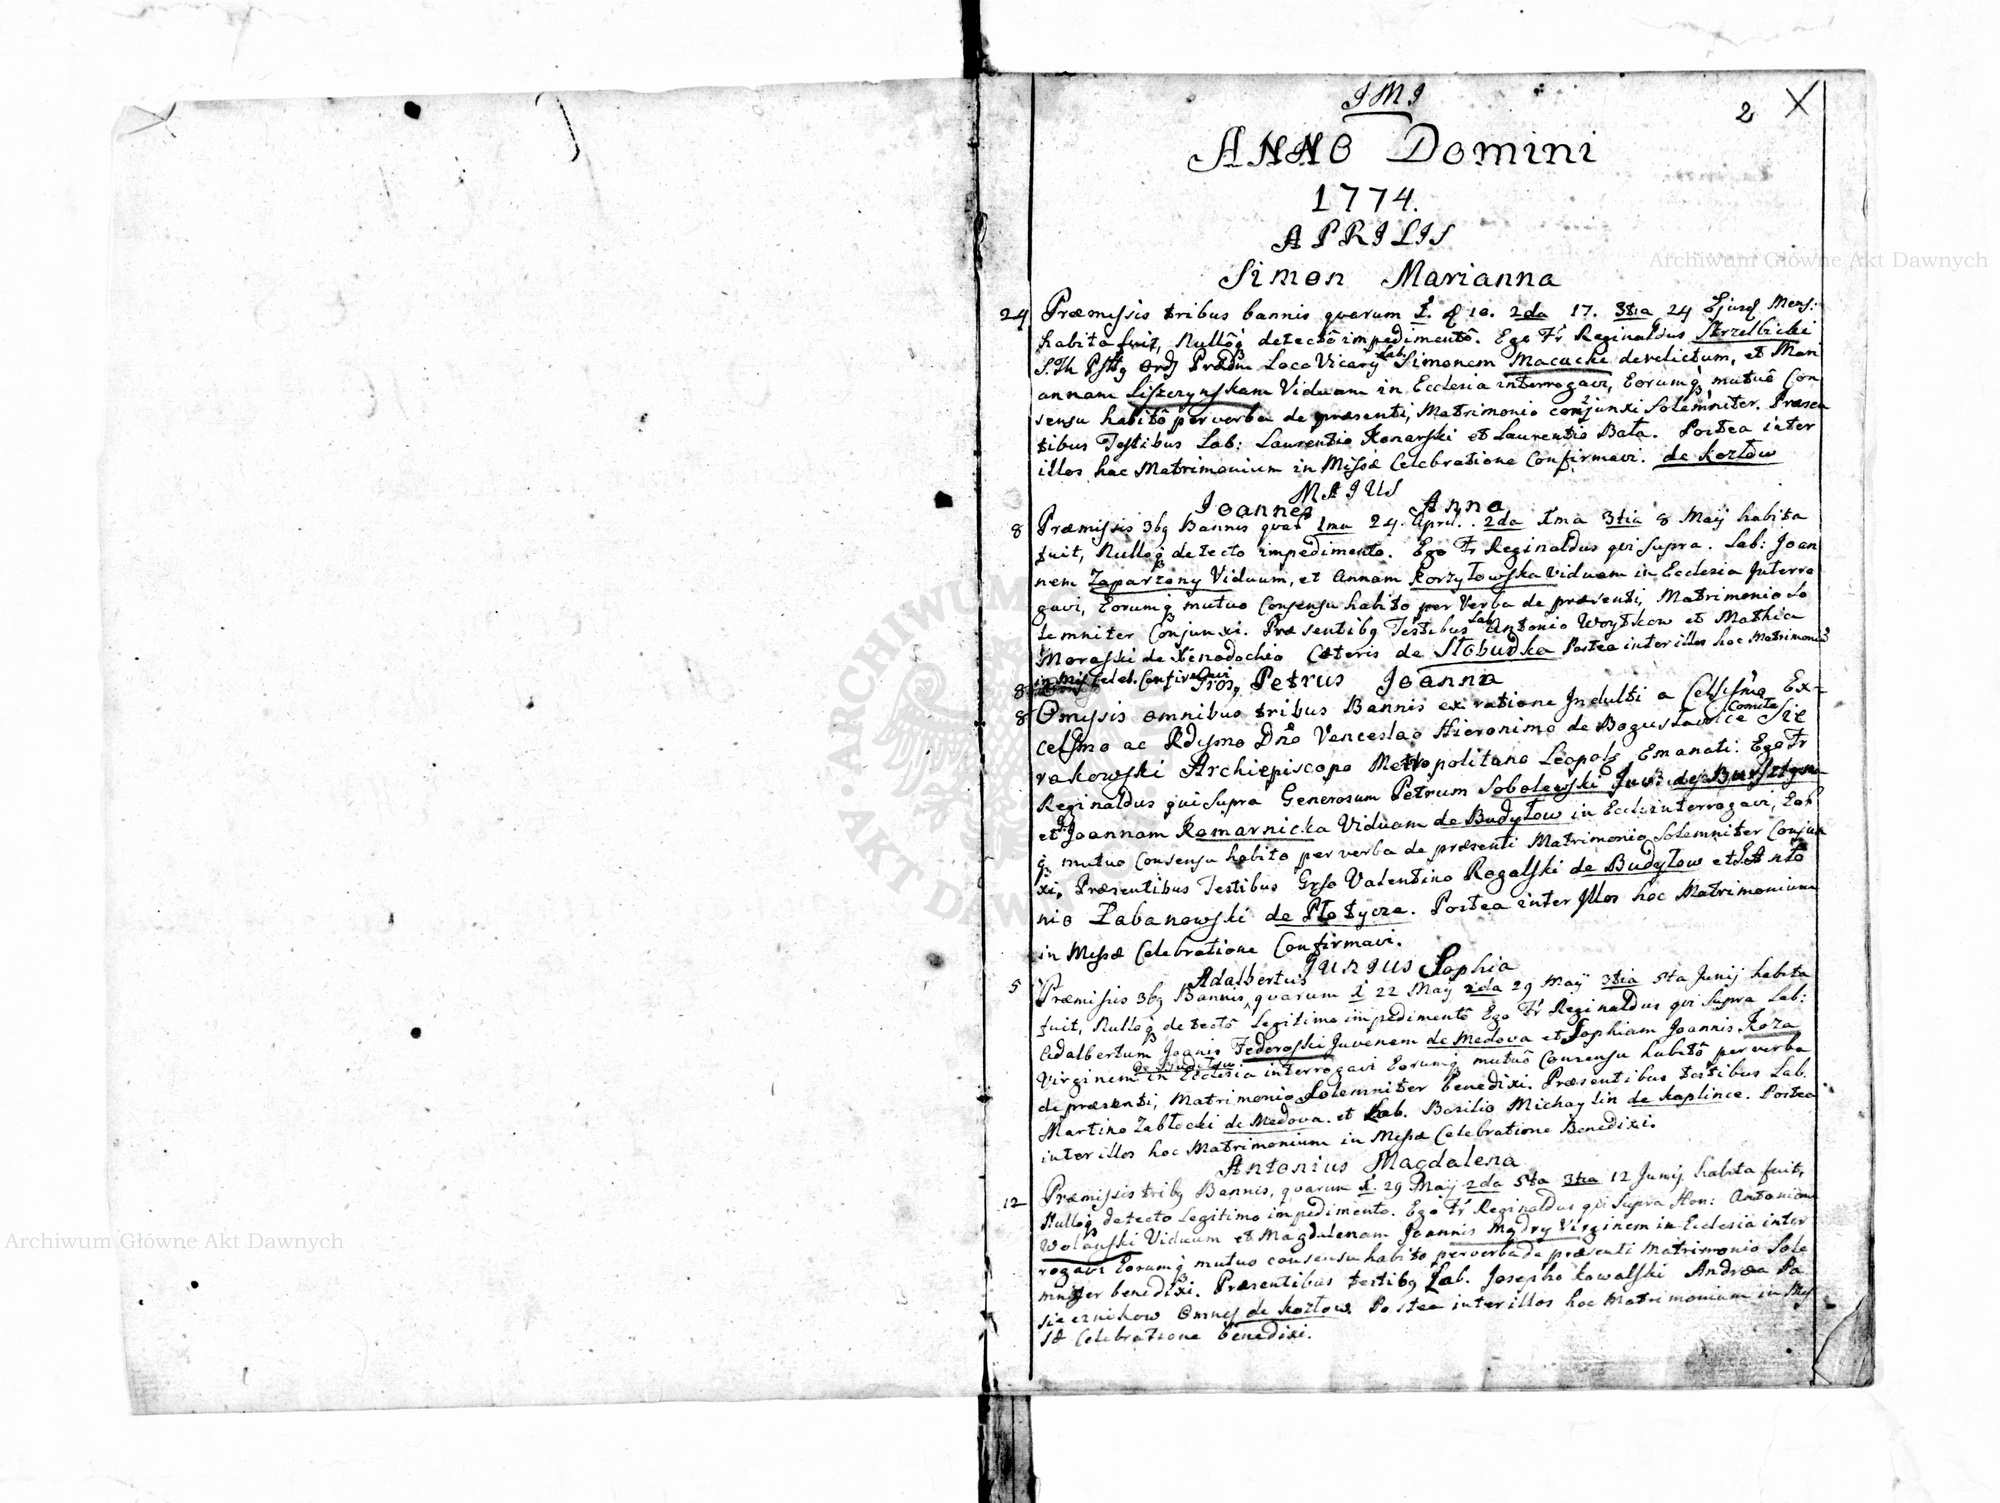 JMJ
2 X
ANNO Domini
1774.
APRILIS
Simon Marianna
24 Præmissis tribus bannis quarum 1. 10. 2da 17. 3tia 24 Ejusd. Mens:
habita fuit, Nullôq detectô impedimentô. Ego Fr. Reginaldus Strzelbicki
S. Th Ord Præd Loco Vicarÿ Lab: Simonem Macucki derelictum, et Mari
annam Liszczynskam Viduam in Ecclesia interrogavi, Eorumq mutuô Con
sensu habitô per verba de præsenti, Matrimonio conjunxi Solemniter. Præsen
tibus Testibus Lab: Laurentio Konarski et Laurentio Bata. Postea inter
illos hac Matrimonium in Missæ Celebratione Confirmavi. de Kozłow
MAJUS
Joannes Anna
8 Præmissis 3bq Bannis quar 1ma 24. April. 2da 1ma 3tia 8 Maÿ habita
fuit, Nulloq detecto impedimento. Ego Fr Reginaldus qui supra. Lab: Joan
nem Zaparzony Viduum, et Annam Korzyłowska Viduam in Ecclesia Interro
gavi, Eorumq mutuo Consensu habito per Verba de præsenti, Matrimonio So
lemniter Conjunxi. Præsentibq Testibus Lab Antonio Woytkow et Mathia
Moraski de Xenodochio Cæteris de Słobudka Postea inter illos hoc Matrimoniû
in Mis Celeb. Confirmavi
8 Gros, Petrus Joanna
8 Omissis omnibus tribus Bannis ex ratione Indulti a Celsissimo Ex-
celsmo ac Rdismo Dno Venceslao Hieronimo de Bogusławice Comite Sie
rakowski Archiepiscopo Metropolitano Leopols Emanati. Ego Fr
Reginaldus qui supra Generosum Petrum Sobolewski Juv: de Bursztyn
et G Joannam Komarnicka Viduam de Budyłow in Eccles: interrogavi, Eor
q mutuo Consensu habito per verba de præsenti Matrimonio Solemniter Conjun
xi, Præsentibus Testibus Grso Valentino Rogalski de Budyłow et Anto
nio Łabanowski de Płotycza. Postea inter Illos hoc Matrimonium
in Missæ Celebratione Confirmavi.
JUNIUS
Adalbertus Sophia
5 Præmissis 3bq Bannis, quarum 1 22 Maÿ 2da 29 Maÿ 3tia 5ta Junij habita
fuit, Nulloq detectô legitimo impedimentô Ego Fr Reginaldus qui supra Lab:
Adalbertum Joanis Fedoroski Juvenem de Medova et Sophiam Joannis Koza
de Budyłow
Virginem in Ecclesia interrogavi Eorumq mutuô Consensu habitô per verba
de præsenti, Matrimonio Solemniter benedixi. Præsentibus testibus Lab.
Martino Zabłocki de Medova. et Lab. Basilio Michaylin de Kaplince. Postea
inter illos hoc Matrimonium in Missæ Celebratione Benedixi.
Antonius Magdalena
12 Præmissis tribq Bannis, quarum 1. 29 Maÿ 2da 5ta 3tia 12 Junij habita fuit,
Nulloq detecto legitimo impedimento. Ego Fr Reginaldus qui supra Hon: Antonium
Wolański Viduum et Magdalenam Joannis Mądry Virginem in Ecclesia inter
rogavi Eorumq mutuo consensu habito per verba de præsenti Matrimonio Sole
mniter benedixi. Præsentibus testibq Lab. Josepho Kowalski Andrea Pa
siecznikow Omnes de Kozłow. Postea inter illos hoc Matrimonium in Mis
sæ Celebratione benedixi.
Archiwum Główne Akt Dawnych
Archiwum Główne Akt Dawnych
ARCHIWUM GŁÓWNE AKT DAWNYCH